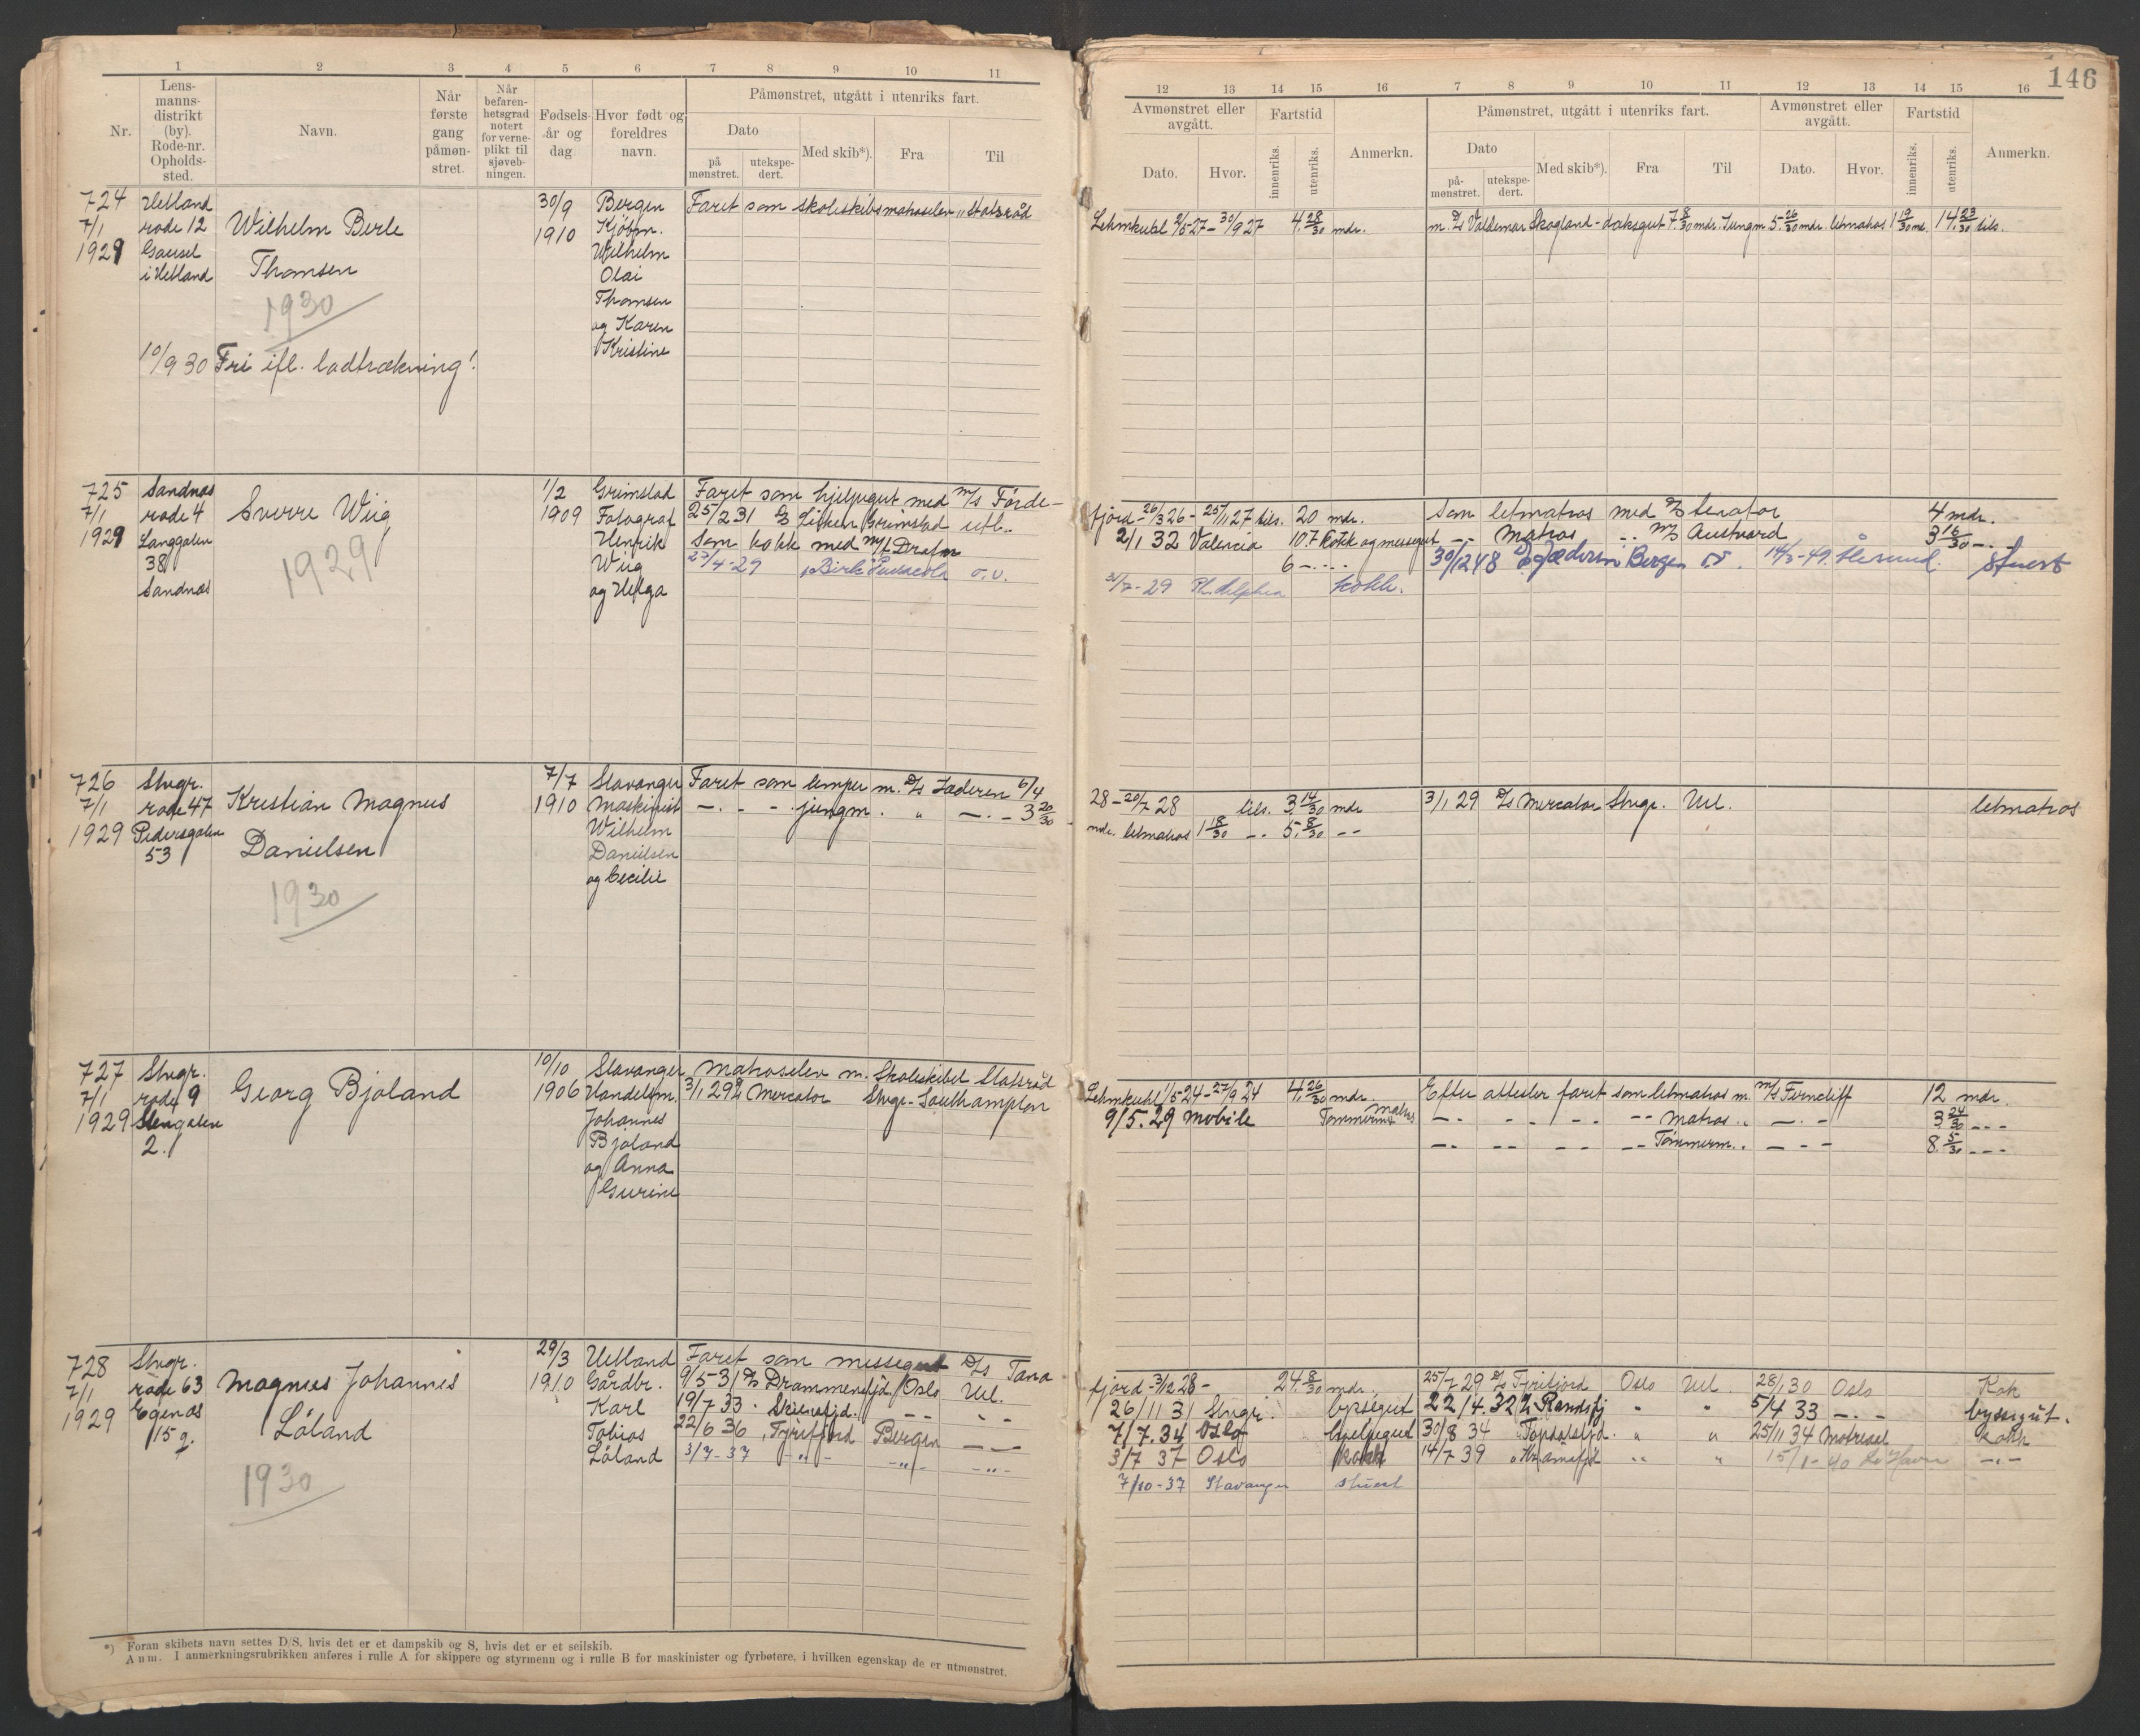 1 2 3 4 5 6 7 8 9 10 11
Nr.
Lens-
manns-
distrikt
(by).
Rode-nr.
Opholds-
sted.
Navn.
Når
første
gang
påmøn-
stret.
Når
befaren-
hetsgrad
notert
for verne-
plikt til
sjøveb-
ningen.
Fødsels-
år og
dag
Hvor født og
foreldres
navn.
Påmønstret, utgått i utenriks fart.
Dato
på
mønstret.
utekspe-
dert.
Med skib*).
Fra
Til
724 Hetland 30/9 Bergen Faret som skoleskibsmatroselev "Statsråd
7/1 rode 12 Wilhelm Berle 1910 Kjöbm.
1929 Gausel Wilhelm
i Hetland Thomsen Olai
1930 Thomsen
og Karen
10/9 30 Fri ifl. lodtrækning! Kristine
725 Sandnæs 1/2 Grimstad Faret som hjelpegut med m/s Förde-
7/1 rode 4 Sverre Wiig 1909 Fotograf 25/2 31 Grimstad utl.
1929 Langgaten Henrik Som kokk med
38 1929 Wiig 27/4-29 o.v.
Sandnæs og Helga
726 Stvgr. 7/7 Stavanger Faret som lemper m. D/s Jæderen 6/4
7/1 rode 47 Kristian Magnus 1910 Maskinist — . - - . jungm. " — . - 3 20/30
1929 Pedersgaten Wilhelm
53 Danielsen Danielsen
1930 og Cecilie
727 Stvgr. 10/10 Stavanger Matroselev m. Skoleskibet Statsråd
7/1 rode 9 Georg Bjoland 1906 Handelsm. 3/1 29 D/s Mercator Stvgr. Southampton
1929 Stengaten Johannes
2. Bjoland
og Anna
Gurine
728 Stvgr. 29/3 Hetland Faret som messegut D/s Tana
7/1 rode 63 Magnus Johannes 1910 Gårdbr. 9/5 31 D/s Drammensfjd. Oslo Utl.
1929 Egenæs Karl 19/7 33 . Skiensfjd. -- --
15 g. Löland Tobias 22/6 36 " Tyrifjord Bergen -—
1930 Löland 3/7-37 -"- -"- -"-
*) Foran skibets navn settes D/S, hvis det er et dampskib og S, hvis det er et seilskib.
Anm. I anmerkningsrubrikken anføres i rulle A for skippere og styrmenn og i rulle B for maskinister og fyrbøtere, i hvilken egenskap de er utmønstret.
146
12 13 14 15 16 7 8 9 10 11 12 13 14 15 16
Avmønstret eller
avgått.
Dato.
Hvor.
Fartstid
innenriks.
utenriks.
Anmerkn.
Påmønstret, utgått i utenriks fart.
Dato
på-
mønstret.
utekspe-
dert.
Med skib*).
Fra
Til
Avmønstret eller
avgått.
Dato.
Hvor.
Fartstid
innenriks.
utenriks.
Anmerkn.
Lehmkuhl 2/5-27 - 30/9 27 4. 28/30 mdr. m. D/s Valdemar Skogland - dæksgut 7. 8/30 mdr. Jungm. 5. 26/30 mdr. letmatros 1 19/30 md. 14. 23/30 tils.
fjord - 26/3 26 - 25/1 27 tils. 20 mdr. Som letmatros med D/s Senator 4 mdr.
2/1 32 Valencia 10.7 Kokk og messegut -- Matros .. M/s Austvard 3 16/30 -.-
6 -.-.- 30/12 48 D/s Jæderen Bergen 14/3-49. Ålesund. Stuert
31/7-29 Kokk.
28 - 20/7 28 tils. 3. 14/30 mdr 3/1 29 D/s Mercator Stvgr. Utl. letmatros
mdr. letmatros 1 18/30 -. 5. 8/30 --
Lehmkuhl 1/5 24 - 27/9 24 4. 26/30 mdr. Efter attester faret som letmatros m. M/s Ferncliff 12 mdr.
9/5. 29 Mobile Tømmerm. matros —. -. -- -- Matros .. —. - 3 24/30 ---
—. -- -- -- Tömmerm. . —-- 8. 5/30 ---
fjord - 3/12 28 - 24. 8/30 mdr. 25/7 29 D/s Tyrifjord Oslo Utl. 28/1 30 Oslo Kok
26/11 31 Stvgr. byssegut 22/4. 32 D/s Randsfj " " 5/4 33 -.- byssegut.
7/7. 34 Oslo hjelpegut 30/8 34 " Topdalsfjd. " " 25/11 34 Kokk
3/7 37 Oslo kokk 14/7 39 " " " 15/1-40 -.-
7/10-37 Stavanger stuert